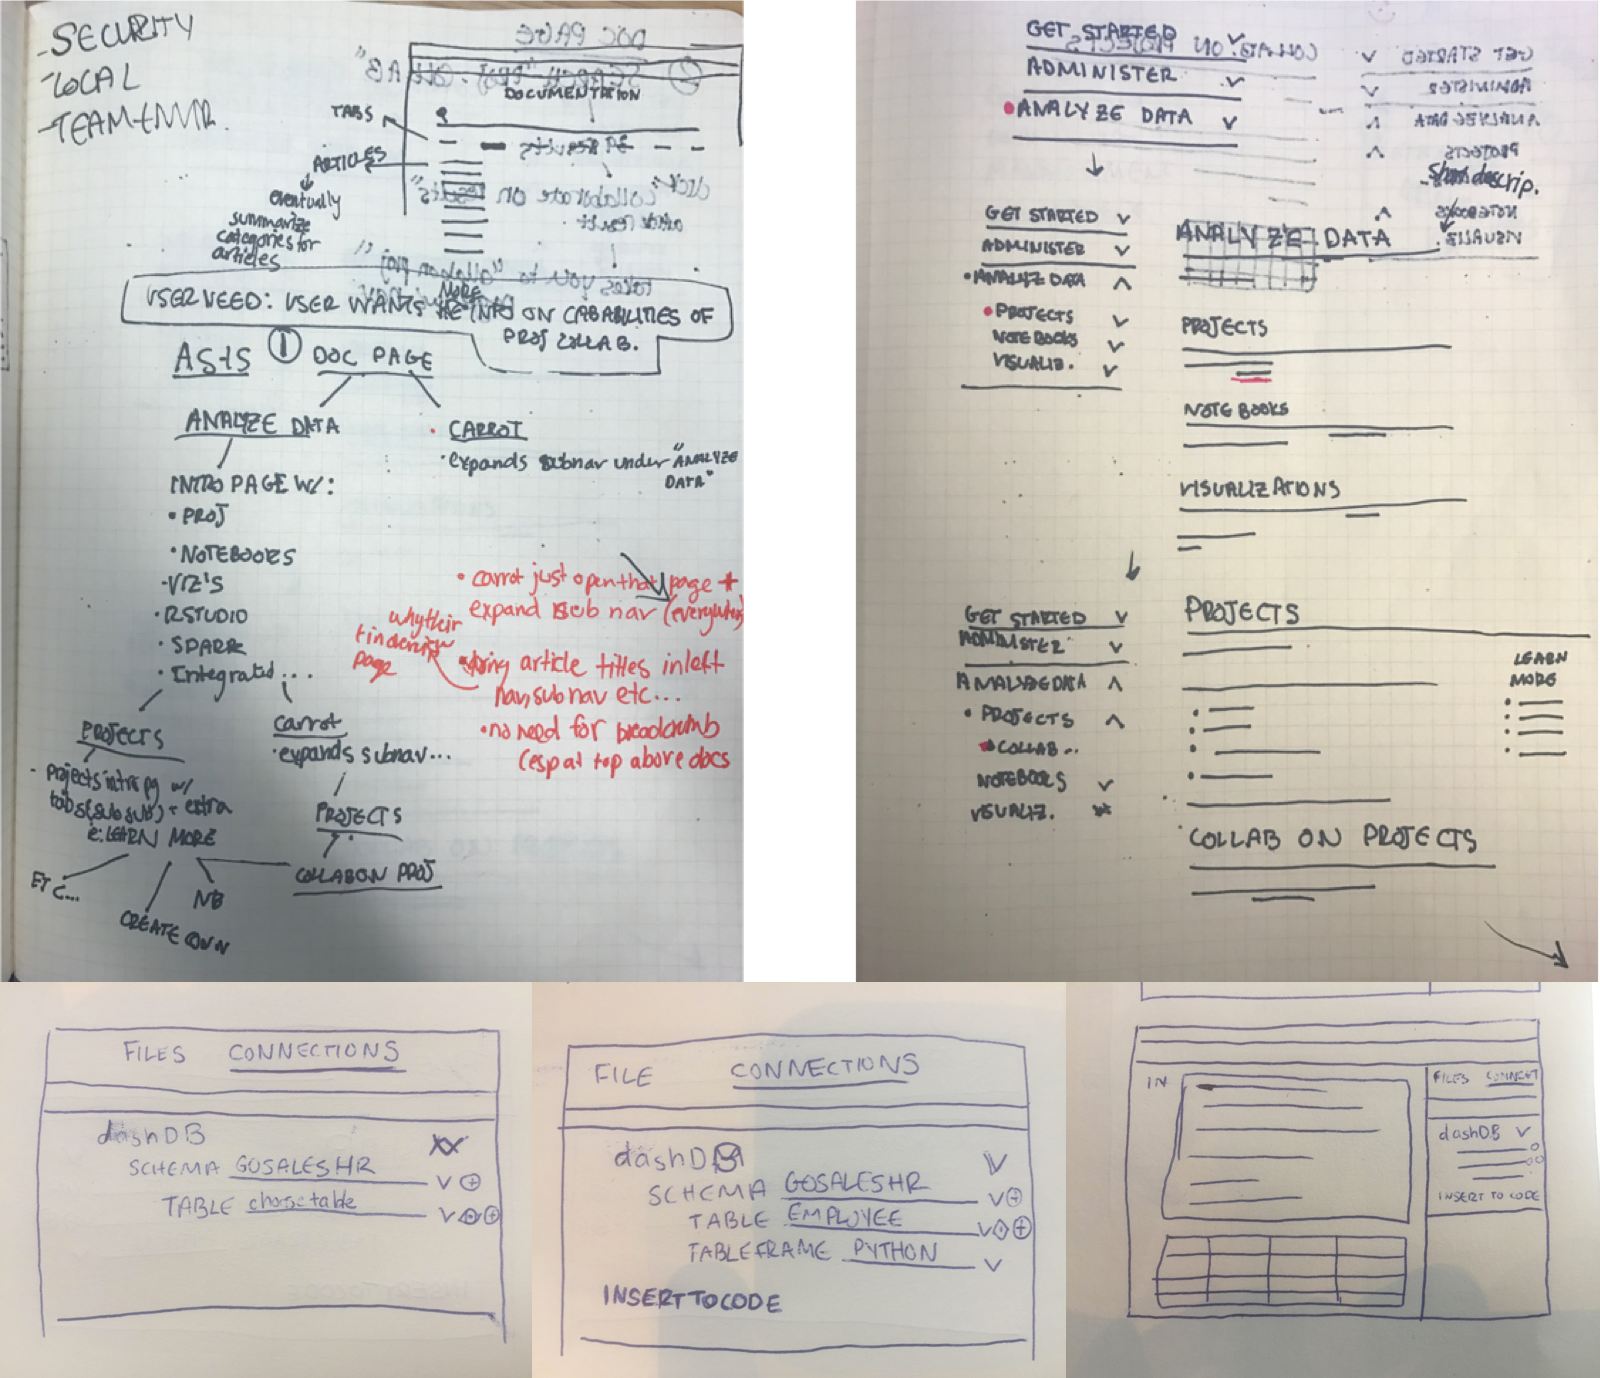 -SECURITY
-LOCAL
-TEAM-ENVIR.
DOCUMENTATION
TABS
ARTICLES
eventually
summarize
categories for
articles
MORE
USER NEED: USER WANTS INFO ON CABABILITIES OF
PROJ COLLAB.
AS-IS
① DOC PAGE
ANALYZE DATA
• CARROT
• expands subnav under "ANALYZE
DATA"
INTRO PAGE W/:
• PROJ
• NOTEBOOKS
• VIZ'S
• RSTUDIO
• SPARK
• Integrated ...
PROJECTS
- projects intro pg w/
tabs(sub sub) + extra
LEARN MORE
ETC...
CREATE OWN
NB
Carrot
• expands subnav...
PROJECTS
COLLAB ON PROJ
• carrot just open that page +
expand sub nav (everywhere)
why their
page
article titles in left
nav, subnav etc...
• no need for breadcrumb
(esp at top above docs
GET STARTED
ADMINISTER
• ANALYZE DATA
Short descrip.
GET STARTED
ADMINISTER
• ANALYZ DATA
• PROJECTS
NOTEBOOKS
VISUALIZ.
ANALYZE DATA
PROJECTS
NOTEBOOKS
VISUALIZATIONS
GET STARTED
ADMINISTER
ANALYZE DATA
• PROJECTS
COLLAB...
NOTEBOOKS
VISUALIZ.
PROJECTS
LEARN
MORE
COLLAB ON PROJECTS
FILES CONNECTIONS
dashDB
SCHEMA GOSALESHR
TABLE choose table
FILE CONNECTIONS
dashDB
SCHEMA GOSALESHR
TABLE EMPLOYEE
TABLEFRAME PYTHON
INSERT TO CODE
IN
FILES CONNECT
dashDB
INSERT TO CODE